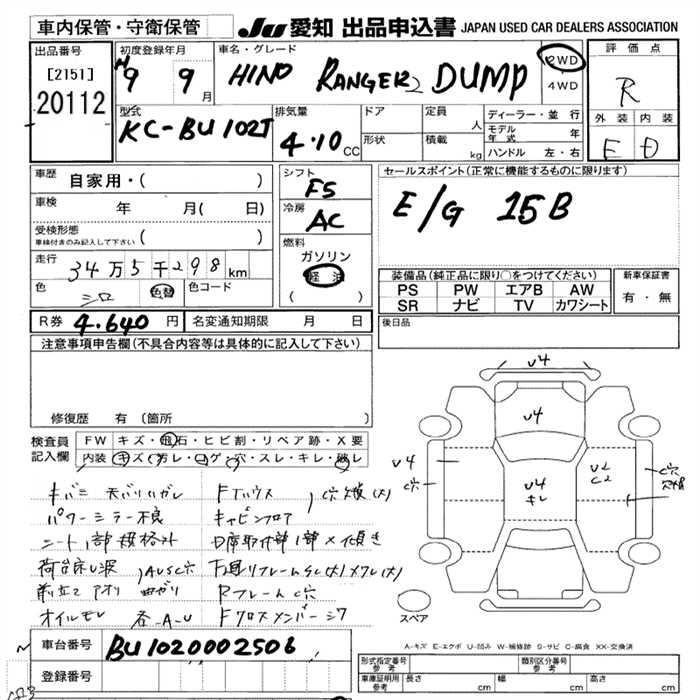 車内保管・守衛保管
JU 愛知 出品申込書 JAPAN USED CAR DEALERS ASSOCIATION
出品番号
[2151]
20112
初度登録年月
H9 9月
車名・グレード
HINO RANGER2 DUMP
2WD
4WD
評価点
R
外装 内装
E D
型式
KC-BU102T
排気量
4.10 CC
ドア
形状
定員 人
積載 kg
ディーラー・並行
モデル年式 年
ハンドル 左・右
車歴 自家用・( )
車検 年 月( 日)
受検形態
車検付きのみ記入して下さい ( )
走行 34万5千298km
色 シロ 色替 色コード
シフト
F5
冷房
AC
燃料
ガソリン
軽油
( )
セールスポイント(正常に機能するものに限ります)
E/G 15B
装備品(純正品に限り○をつけてください)
PS PW エアB AW
SR ナビ TV カワシート
新車保証書
有・無
後日品
R券 4.640円 名変通知期限 月 日
注意事項申告欄(不具合内容等は具体的に記入して下さい)
修復歴 有(箇所
検査員記入欄
FW キズ・飛石・ヒビ割・リペア跡・X要
内装 キズ・ヨゴレ・コゲ・穴・スレ・キレ・破レ
キバミ 天バリハガレ
パワーミラー不良
シート1部規格外
荷台床U波
前立て アオリ 曲ガリ
AUSC穴
オイルモレ 各A-U
Fハウス
キャビンフロア
C穴X(大)
Fクロスメンバーシワ
RフレームC穴
V4
V4
V4
キレ
V4
C穴
U2
C2
C穴
スペア
A-キズ E-エクボ U-凹み W-補修跡 S-サビ C-腐食 XX-交換済
車台番号 BU1020002506
登録番号
形式指定番号 参考
類別区分番号 参考
車庫証明用 参考 長さ cm 幅 cm 高さ cm